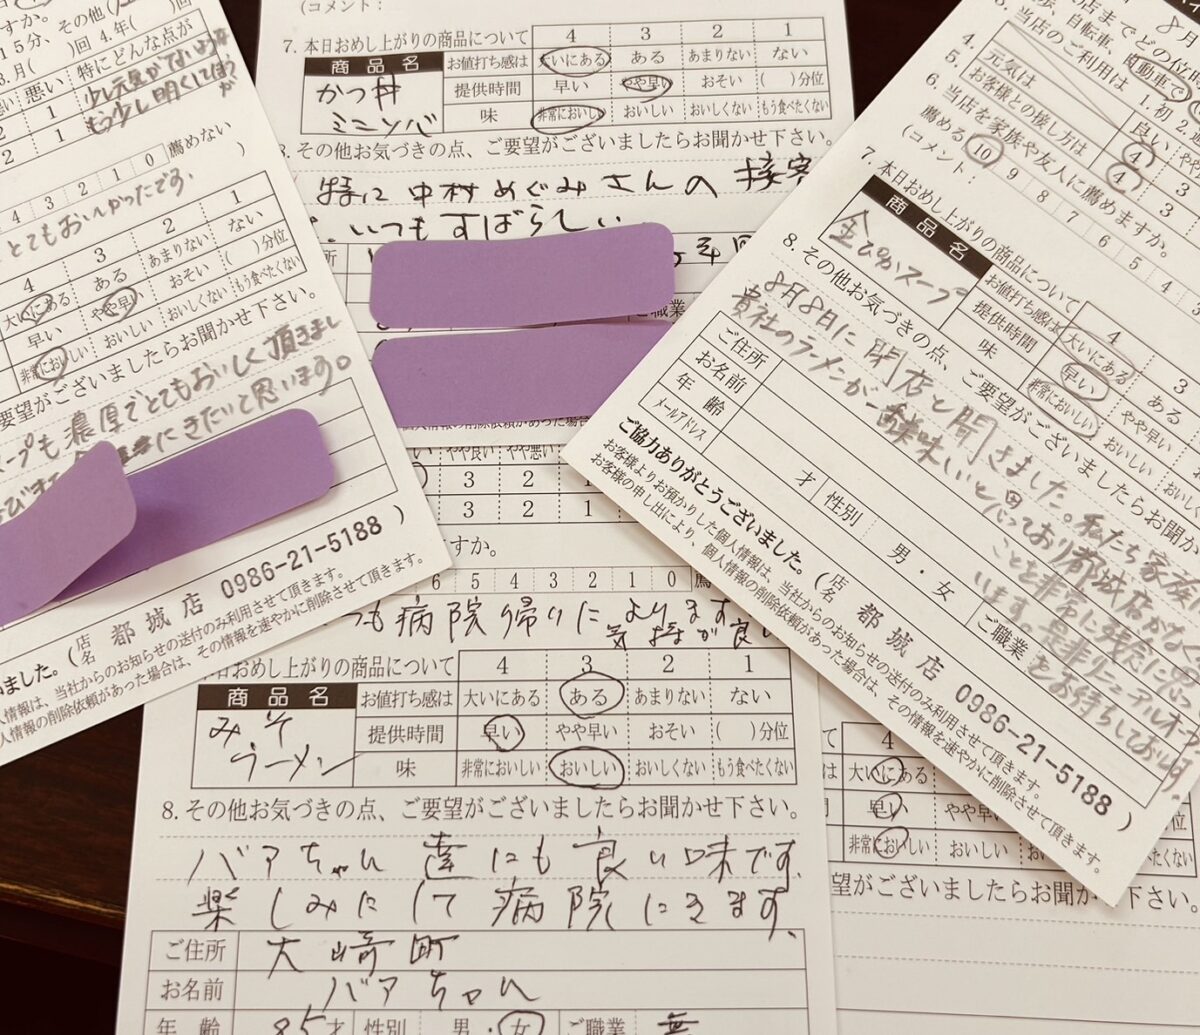 15分、その他(
)回 4.年(　)回
3.月(
悪い 特にどんな点が
少し元気がないような
もう少し明るくてほう
2 1
2 1
4 3 2 1 0 薦めない
とてもおいしかったです。
4 3 2 1
大いにある ある あまりない ない
早い やや早い おそい (　)分位
非常においしい おいしい おいしくない もう食べたくない
要望がございましたらお聞かせ下さい。
スープも濃厚でとてもおいしく頂きまし
にきたいと思います。
都城店 0986-21-5188 )
ました。(店名
人情報は、当社からのお知らせの送付のみ利用させて頂きます。
人情報の削除依頼があった場合は、その情報を速やかに削除させて頂きます。
(コメント:
7. 本日おめし上がりの商品について 4 3 2 1
商品名 お値打ち感は 大いにある ある あまりない ない
かつ丼 提供時間 早い やや早い おそい (　)分位
ミニソバ 味 非常においしい おいしい おいしくない もう食べたくない
8. その他お気づきの点、ご要望がございましたらお聞かせ下さい。
特に中村めぐみさんの接客
いつもすばらしい
ご職業
やや良い やや悪い
3 2 1
3 2 1
すか。
6 5 4 3 2 1 0 薦
つも病院帰りによります
気持が良い
本日おめし上がりの商品について 4 3 2 1
商品名 お値打ち感は 大いにある ある あまりない ない
みそ 提供時間 早い やや早い おそい (　)分位
ラーメン 味 非常においしい おいしい おいしくない もう食べたくない
8. その他お気づきの点、ご要望がございましたらお聞かせ下さい。
バアちゃん達にも良い味です。
楽しみにして病院にきます。
ご住所 大崎町
お名前 バアちゃん
年齢 85才 性別 男・女 ご職業 無
8月
店までどの位
歩、自転車、自動車で(
当店のご利用は 1.初 2.
4. 元気は 良い やや
5. お客様との接し方は 4 3
4 3
6. 当店を家族や友人に薦めますか。
薦める 10 9 8 7 6 5 4
(コメント:
7. 本日おめし上がりの商品について 4 3
商品名 お値打ち感は 大いにある ある
金ぴかスープ 提供時間 早い やや早い
味 非常においしい おいしい
8. その他お気づきの点、ご要望がございましたらお聞か
8月8日に閉店と聞きました。私たち家族
貴社のラーメンが一番美味しいと思っており都城店がなく
ことを非常に残念に思
います。是非リニューアルオー
をお待ちしております。
ご住所
お名前
年齢 才 性別 男・女 ご職業
メールアドレス
ご協力ありがとうございました。(店名 都城店 0986-21-5188 )
お客様よりお預かりした個人情報は、当社からのお知らせの送付のみ利用させて頂きます。
お客様の申し出により、個人情報の削除依頼があった場合は、その情報を速やかに削除させて頂きます。
4
大いにある
早い やや早
非常においしい おいしい
望がございましたらお聞かせ下さい。